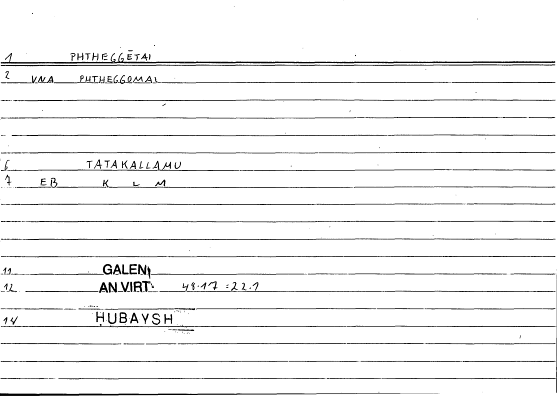 1 PHTHEGGĒTAI
2 VNA PHTHEGGOMAI
6 TATAKALLAMU
7 EB K L M
11 GALEN
12 AN.VIRT. 48.17 =22.1
14 HUBAYSH